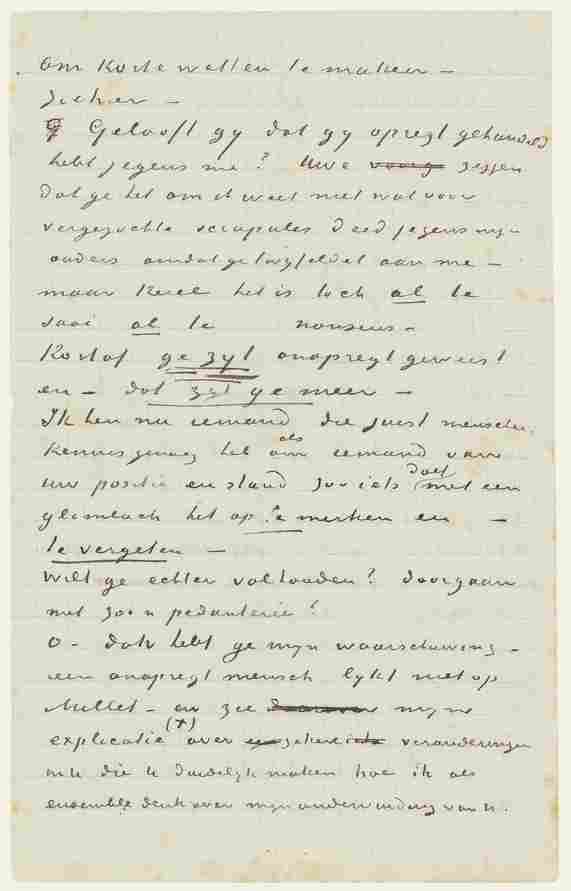 Om korte wetten te maken –
Zeker –
Gelooft gy dat gy opregt gehandeld
hebt jegens me? Uwe zeggen
dat ge het om ik weet niet wat voor
vergezochte scrupules deed jegens myn
ouders omdat ge twyfeldet aan me –
maar Kerel het is toch al te
zooi al te nonsens –
Kortaf ge zyt onopregt geweest
en – dat zyt ge meer –
Ik ben nu iemand die juist menschen
kennis genoeg heb om als iemand van
uw positie en stand zoo iets doet met een
glimlach het op te merken en –
te vergeten –
Wilt ge echter volhouden? doorgaan
met zoo'n pedanterie?
O – dan hebt ge myn waarschuwing –
een onopregt mensch lykt niet op
Millet – en zie myne
explicatie (+) over zekere veranderingen
die U duidelyk maken hoe ik als
ensemble denk over myn ondervinding van U.